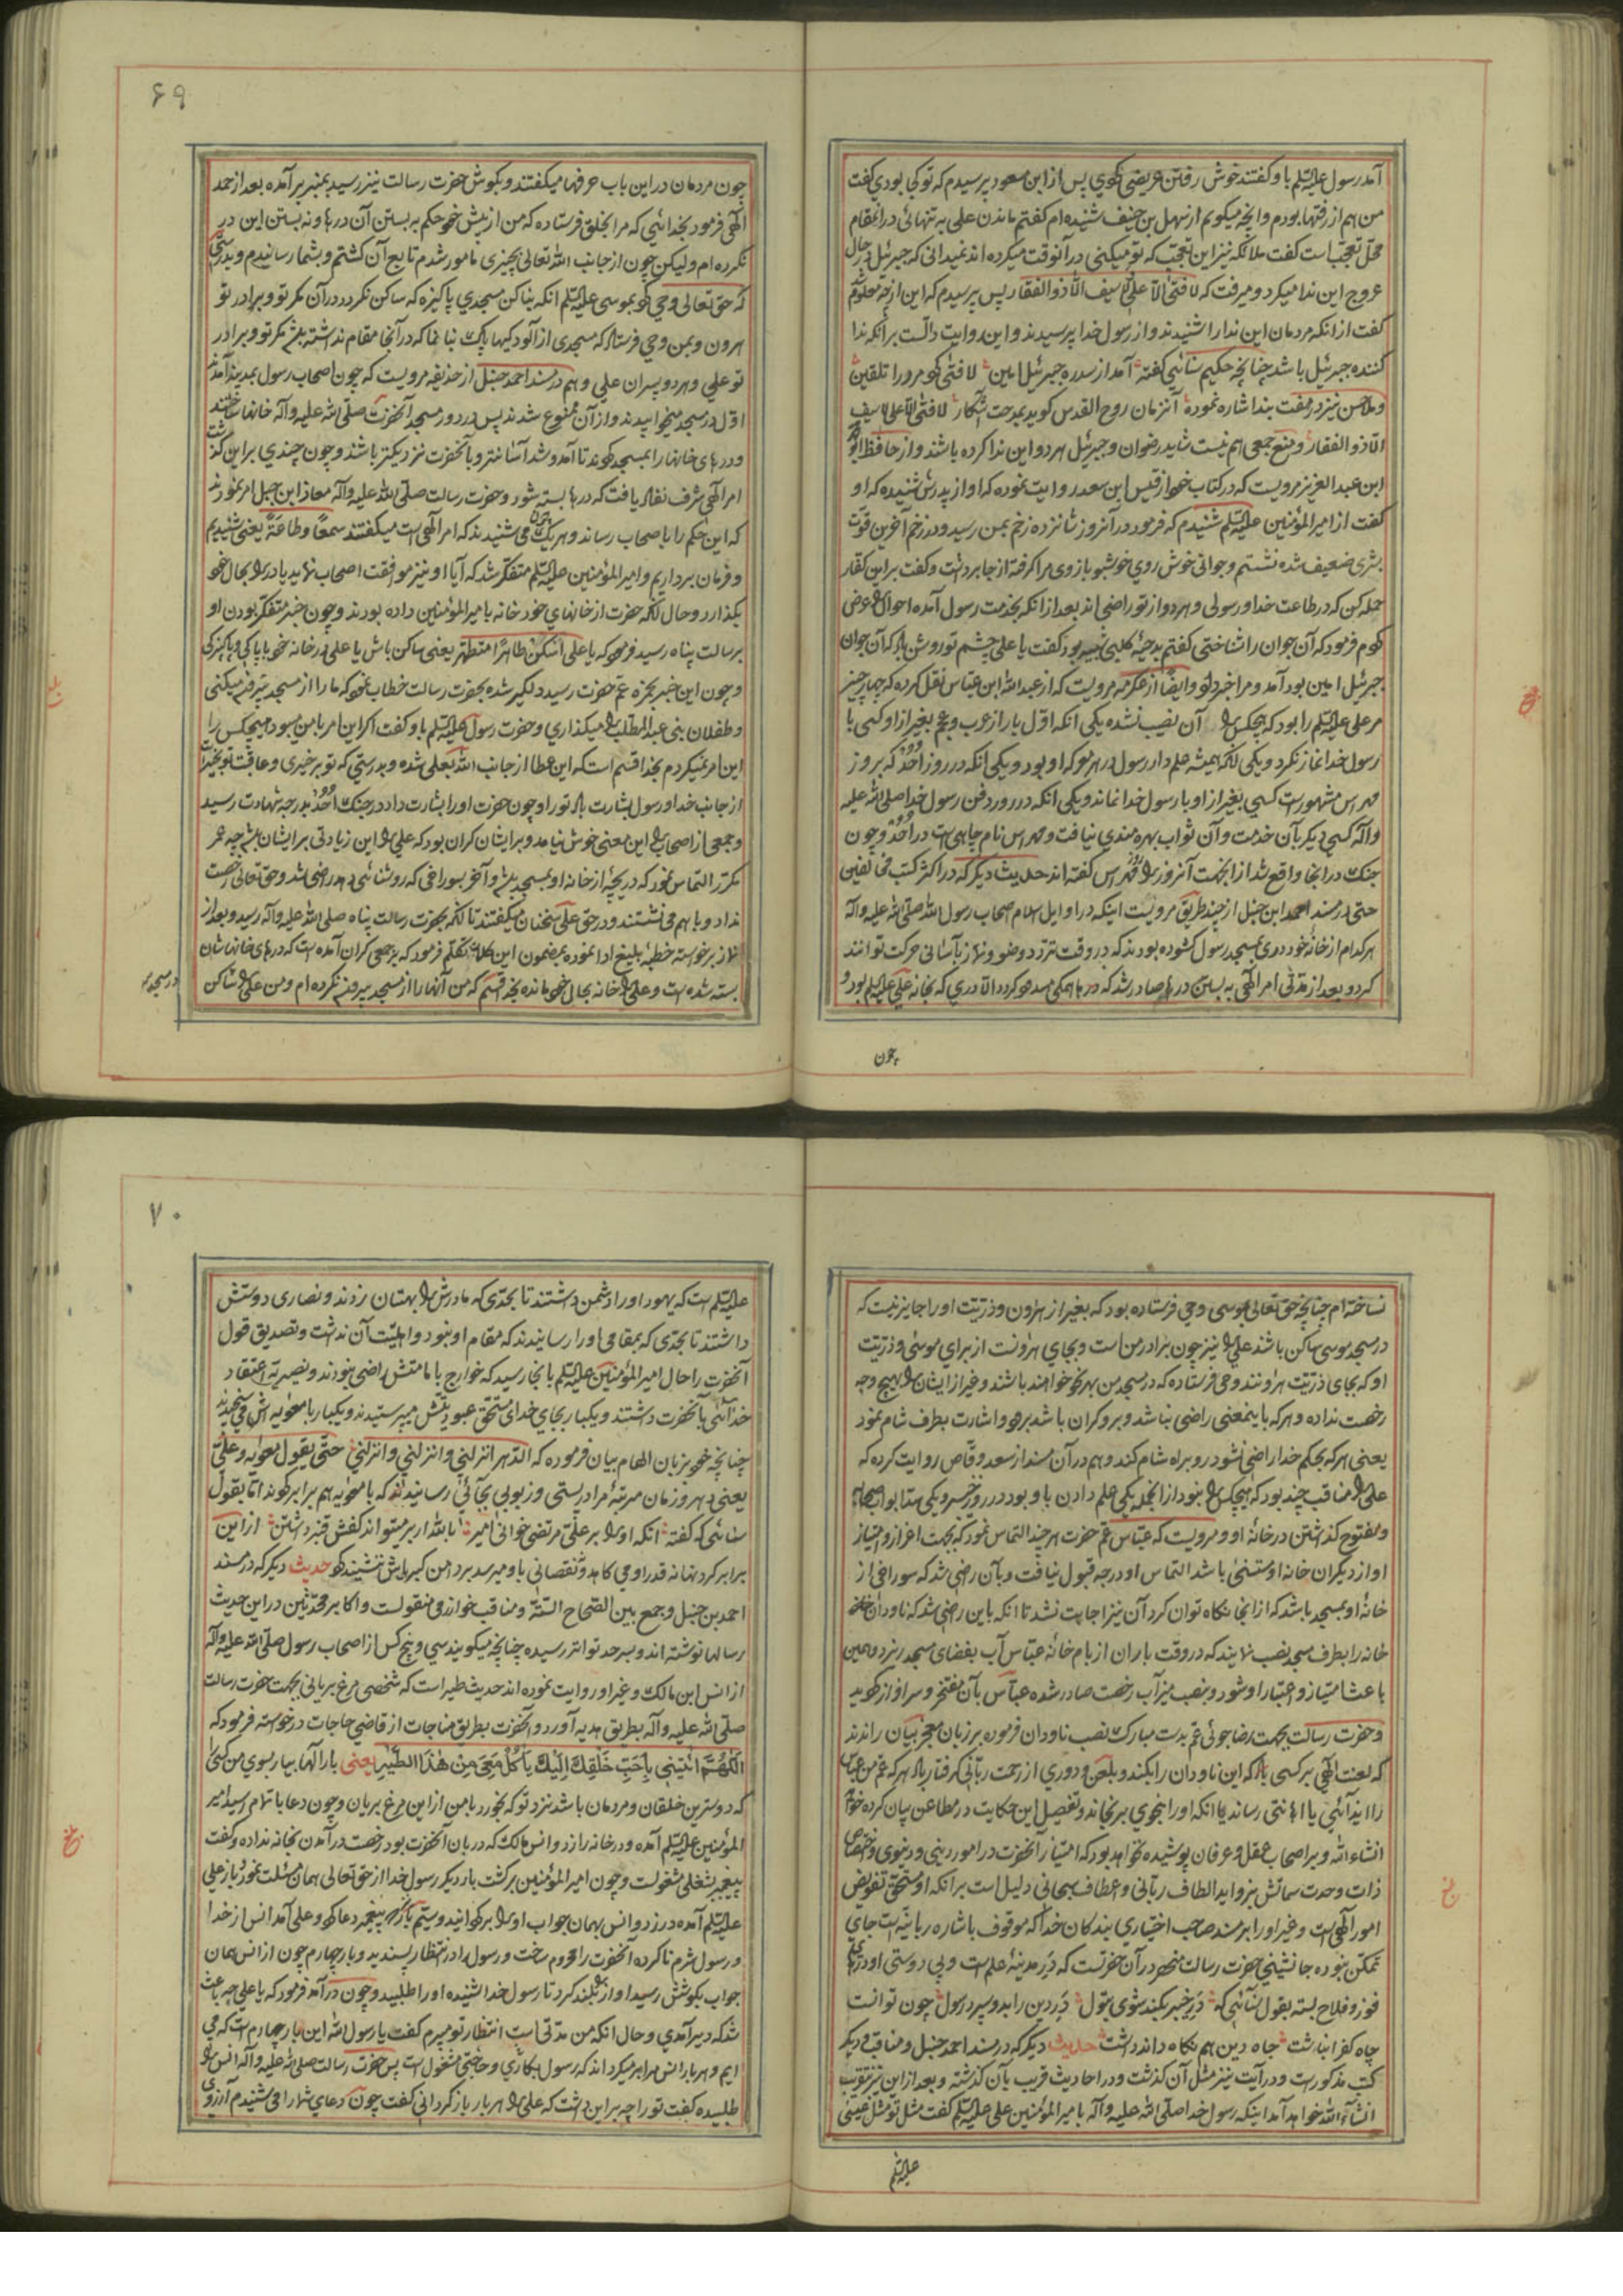 آمد رسول علیه السّلم با و کفتند خوش رفتن عریضی کوی پس از ابن مسعود پرسیدم که تو کجا بودی کفت
من هم از رفتها بودم و آنچه میکویم از سهل بن حنیف شنیده ام کفتم ماندن علی به تنهائی در آنمقام
محلّ تعجّب است کفت ملائکه نیز این تعجّب که تو میکنی در آنوقت میکرده اند نمیدانی که جبرئیل در حال
عروج این ندا میکرد و میرفت که لا فتی الّا علی لا سیف الّا ذوالفقار پس پرسیدم که این از چه معلوم
کفت از انکه مردمان این ندا را شنیدند و از رسول خدا پرسیدند و این روایت دالّست بر آنکه ندا
کننده جبرئیل باشد چنانچه حکیم سنائی کفته آمد از سدره جبرئیل امین لا فتی کو مرو را تلقین
و ملا حسن نیز در هفت بند اشاره نموده آنزمان روح القدس کوید بمدحت آشکار لا فتی الّا علی لا سیف
الّا ذوالفقار و منع جمعی هم نیست شاید رضوان و جبرئیل هر دو این ندا کرده باشند و از حافظ ابو محمد
ابن عبد العزیز مرویست که در کتاب خود از قیس ابن سعد روایت نموده که او از پدرش شنیده که او
کفت از امیر المؤمنین علیه السّلم شنیدم که فرمود در آنروز شانزده زخم بمن رسید و در زخم آخرین قوّت
بشری ضعیف شده نشستم و جوانی خوش روی خوشبو بازوی مرا کرفته از جا برداشت و کفت بر این کفّار
حمله کن که در طاعت خدا و رسولی و هر دو از تو راضی اند بعد از انکه بخدمت رسول آمده احوال را عرض
کردم فرمود که آن جوان را شناختی کفتم بدحیهٔ کلبی شبیه بود کفت یا علی چشم تو روشن باد که آن جوان
جبرئیل امین بود آمد و مرا خبر داد و ایضًا از عکرمه مرویست که از عبد الله ابن عبّاس نقل کرده که چهار چیز
مر علی علیه السّلم را بود که هیچکس را آن نصیب نشده یکی انکه اوّل بار از عرب و عجم بغیر از او کسی با
رسول خدا نماز نکرد و یکی انکه همیشه علم دار رسول در هر معرکه او بود و یکی انکه در روز اُحُد که بروز
مهراس مشهور است کسی بغیر از او با رسول خدا نماند و یکی انکه در روز دفن رسول خدا صلی الله علیه
و آله کسی دیگر بآن خدمت و آن ثواب بهره مندی نیافت و مهراس نام چاهی است در اُحُد و چون
جنک در انجا واقع شد از انجهت آنروز را مهراس کفته اند حدیث دیکر که در اکثر کتب مخالفین
حتی در مسند احمد ابن حنبل از چند طریق مرویست اینکه در اوایل اسلام اصحاب رسول الله صلّی الله علیه و آله
هر کدام از خانهٔ خود دری بمسجد رسول کشوده بودند که در وقت تردّد وضو و نماز بآسانی حرکت توانند
کرد و بعد از مدّتی امر الٓهی به بستن درها صادر شد که درها همکی مسدود کردد الّا دری که بخانه علی علیه السّلم بود و
چون
۶۹
چون مردمان در این باب حرفها میکفتند و بکوش حضرت رسالت نیز رسید بمنبر بر آمده بعد از حمد
الٓهی فرمود بخدائیی که مرا بخلق فرستاده که من از پیش خود حکم به بستن آن درها و نه بستن این در
نکرده ام و لیکن چون از جانب الله تعالی بچیزی مامور شدم تابع آن کشتم و بشما رسانیدم و بدرستی
که حق تعالی وحی کرد بموسی علیه السّلم انکه بنا کن مسجدی پاکیزه که ساکن نکردد در آن مکر تو و برادر تو
هرون و بمن وحی فرستاد که مسجدی از آلودکیها پاک بنا نما که در آنجا مقام نداشته باشد مکر تو و برادر
تو علی و هر دو پسران علی و هم در مسند احمد حنبل از حذیفه مرویست که چون اصحاب رسول بمدینه آمدند
اوّل در مسجد میخوابیدند و از آن ممنوع شدند پس در دور مسجد آنحضرت صلّی الله علیه و آله خانها ساختند
و درهای خانها را بمسجد کردند تا آمد و شد آسانتر و بآنحضرت نزدیکتر باشند و چون چندی بر این کذشت
امر الٓهی شرف نفاذ یافت که درها بسته شود و حضرت رسالت صلّی الله علیه و آله معاذ ابن جبل امر نمودند
که این حکم را باصحاب رساند و هر یک چون می شنیدند که امر الٓهی است میکفتند سمعًا و طاعةً یعنی شنیدیم
و فرمان برداریم و امیر المؤمنین علیه السّلم متفکّر شد که آیا او نیز موافقت اصحاب نماید یا در را بحال خود
بکذارد و حال انکه حضرت از خانهای خود خانه بامیر المؤمنین داده بودند و چون خبر متفکّر بودن او
برسالت پناه رسید فرمود که یا علی اُسکن طاهرًا متطهرًا یعنی ساکن باش یا علی در خانه خود با پاکی و پاکیزکی
و چون این خبر بحمزه عمّ حضرت رسید دلکیر شده بحضرت رسالت خطاب نمود که ما را از مسجد بیرون میکنی
و طفلان بنی عبد المطّلب را میکذاری و حضرت رسول علیه السّلم با و کفت اکر این امر بامن میبود هیچکس را
این امر نمیکردم بخدا قسم است که این عطا از جانب الله بعلی شده و بدرستی که تو بر خیری و عاقبت تو بخیر است
از جانب خدا و رسول بشارت باد تو را و چون حضرت او را بشارت داد در جنک اُحُد بدرجه شهادت رسید
و جمعی از اصحاب را این معنی خوش نیامد و بر ایشان کران بود که علی را این زیادتی بر ایشان باشد چه عمر
مکرّر التماس نمود که دریچهٔ از خانه او بمسجد باشد و آخر بسوراخی که روشنائی دهد راضی شد و حق تعالی رخصت
نداد و با هم می نشستند و در حق علی سخنان میکفتند تا آنکه بحضرت رسالت پناه صلی الله علیه و آله رسید و بعد از
نماز برخواسته خطبهٔ بلیغ ادا نموده بمضمون این کلام تکلّم فرمود که بر جمعی کران آمده است که درهای خانهاشان
بسته شده است و علی را خانه بحال خود مانده بخدا قسم که من آنها را از مسجد بیرون نکرده ام و من علی را ساکن
در مسجد
نساخته ام چنانچه حق تعالی بموسی وحی فرستاده بود که بغیر از هٰرون و ذرّیّت او را جایز نیست که
در مسجد موسی ساکن باشند علی را نیز چون برادر من است و بجای هٰرونست از برای موسی و ذرّیّت
او که بجای ذرّیّت هٰرونند وحی فرستاده که در مسجد من بهر نحو خواهند باشند و غیر از ایشان را بهیچ وجه
رخصت نداده و هر که باینمعنی راضی نباشد و بر و کران باشد برود و اشارت بطرف شام نمود
یعنی هر که بحکم خدا راضی نشود رو براه شام کند و هم در آن مسند از سعد وقّاص روایت کرده که
علی را مناقب چند بود که هیچکس را نبود از انجمله یکی علم دادن با و بود در روز خیبر و یکی سدّ ابواب صحابه
و مفتوح کذاشتن در خانهٔ او و مرویست که عبّاس عمّ حضرت هر چند التماس نمود که بجهت اعزاز و امتیاز
او از دیکران خانه او مستثنی باشد التماس او درجه قبول نیافت و بآن راضی شد که سوراخی از
خانهٔ او بمسجد باشد که از انجا نکاه توان کرد آن نیز اجابت نشد تا انکه باین راضی شد که ناودان
خانه را بطرف مسجد نصب نمایند که در وقت باران از بام خانهٔ عبّاس آب بفضای مسجد ریزد و همین
باعث امتیاز و اعتبار او شود و بنصب میزاب رخصت صادر شده عبّاس بآن مفتخر و سرافراز کردید
و حضرت رسالت بجهت رضا جوئی عمّ بدست مبارک نصب ناودان فرموده بر زبان معجز بیان راندند
که لعنت الٓهی بر کسی باد که این ناودان را بکند و بلعن و دوری از رحمت ربّانی کرفتار باد هر که عمّ من عبّاس
را ایذائی یا اهانتی رساند یا انکه او را بنحوی برنجاند و تفصیل این حکایت در مطاعن بیان کرده خواهد
انشاء الله و بر اصحاب عقل و عرفان پوشیده نخواهد بود که امتیاز انحضرت در امور دینی و دنیوی و اختصاص
ذات وحدت سماتش بزواید الطاف ربّانی و اعطاف سبحانی دلیل است بر انکه او مستحق تفویض
امور الٓهی است و غیر او را بر مسند صاحب اختیاری بندکان خدا که موقوف باشاره ربانیّه است جای
تمکّن نبوده جانشینی حضرت رسالت منحصر در آن حضرتست که دَرِ مدینهٔ علم است و بی دوستی او درهای
فوز و فلاح بسته بقول سنائی که دَرِ خیبر بکند شوی بتول دَرِ دین را بدو سپرد رسول چون توانست
چاه کفر انباشت جاه دین هم نکاه داند داشت حدیث دیکر که در مسند احمد حنبل و مناقب و دیکر
کتب مذکورست و در آیت نیز مثل آن کذشت و در احادیث قریب بآن کذشته و بعد از این نیز بتقریب
انشاء الله خواهد آمد اینکه رسول خدا صلّی الله علیه و آله بامیر المؤمنین علی علیه السّلم کفت مثل تو مثل عیسی
علیه السّلم
۷۰
علیه السّلم است که یهود او را دشمن داشتند تا بحدّی که مادرش را بهتان زدند و نصاری دوستش
داشتند تا بحدّی که بمقامی او را رسانیدند که مقام او نبود و اهلیّت آن نداشت و تصدیق قول
آنحضرت را حال امیر المؤمنین علیه السّلم بانجا رسید که خوارج بامامتش راضی نبودند و نصیریّه اعتقاد
خدائی بآنحضرت داشتند و یکبار بجای خدای مستحق عبودیتش میپرستیدند و یکبار با معویه اش می سنجیدند
چنانچه خود بزبان الهام بیان فرموده که الدّهر انزلنی و انزلنی و انزلنی حتّی یقول معویه و علیّ
یعنی دهر و زمان مرتبهٔ مرا در پستی و زبونی بجائی رسانیدند که با معویه هم برابر کردند امّا بقول
سنائی که کفته انکه او را بر علی مرتضی خوانی امیر بالله ار بر میتواند کفش قنبر داشتن از این
برابر کردنها نه قدر او می کاهد و نقصانی باو میرسد بر دامن کبریاش ننشیند کرد حدیث دیکر که در مسند
احمد بن حنبل و جمع بین الصّحاح السّتّه و مناقب خوارزمی منقولست و اکابر محدّثین در این حدیث
رسالها نوشته اند و بسرحد تواتر رسیده چنانچه میکویند سی و پنج کس از اصحاب رسول صلّی الله علیه و آله
از انس ابن مالک و غیر او روایت نموده اند حدیث طیر است که شخصی مرغ بریانی بجهت حضرت رسالت
صلّی الله علیه و آله بطریق هدیه آورد و آنحضرت بطریق مناجات از قاضی حاجات درخواسته فرمود که
اَللّهُمَّ ائْتِنِی بِاَحَبِّ خَلْقِكَ اِلَیْكَ یَأکُلُ مَعِیَ مِنْ هٰذَا الطَّیْرِ یعنی بارالٓها بیار بسوی من کسی
که دوسترین خلقان و مردمان باشد نزد تو که بخورد با من از این مرغ بریان و چون دعا باتمام رسید امیر
المؤمنین علیه السّلم آمده و در خانه را زد و انس مالک که دربان انحضرت بود رخصت درآمدن بخانه نداده و کفت
پیغمبر بشغلی مشغولست و چون امیر المؤمنین برکشت بار دیکر رسول خدا از حق تعالی همان مسئلت نمود و باز علی
علیه السّلم آمده در زد و انس بهمان جواب او را برکردانید و سیّم بار که پیغمبر دعا کرد و علی آمد انس از خدا
و رسول شرم نا کرده آنحضرت را محروم ساخت و رسول را در انتظار پسندید و بار چهارم چون از انس همان
جواب بکوشش رسید آواز بلند کرد تا رسول خدا شنیده او را طلبید و چون درآمد فرمود که یا علی چه باعث
شد که دیر آمدی و حال انکه من مدّتی است انتظار تو میبرم کفت یا رسول الله این بار چهارم است که می
ایم و هر بار انس مرا بر میکرداند که رسول بکاری و حاجتی مشغول است پس حضرت رسالت صلی الله علیه و آله انس را
طلبیده کفت تو را چه بر این داشت که علی را هر بار باز کردانی کفت چون دعای شما را می شنیدم آرزوی